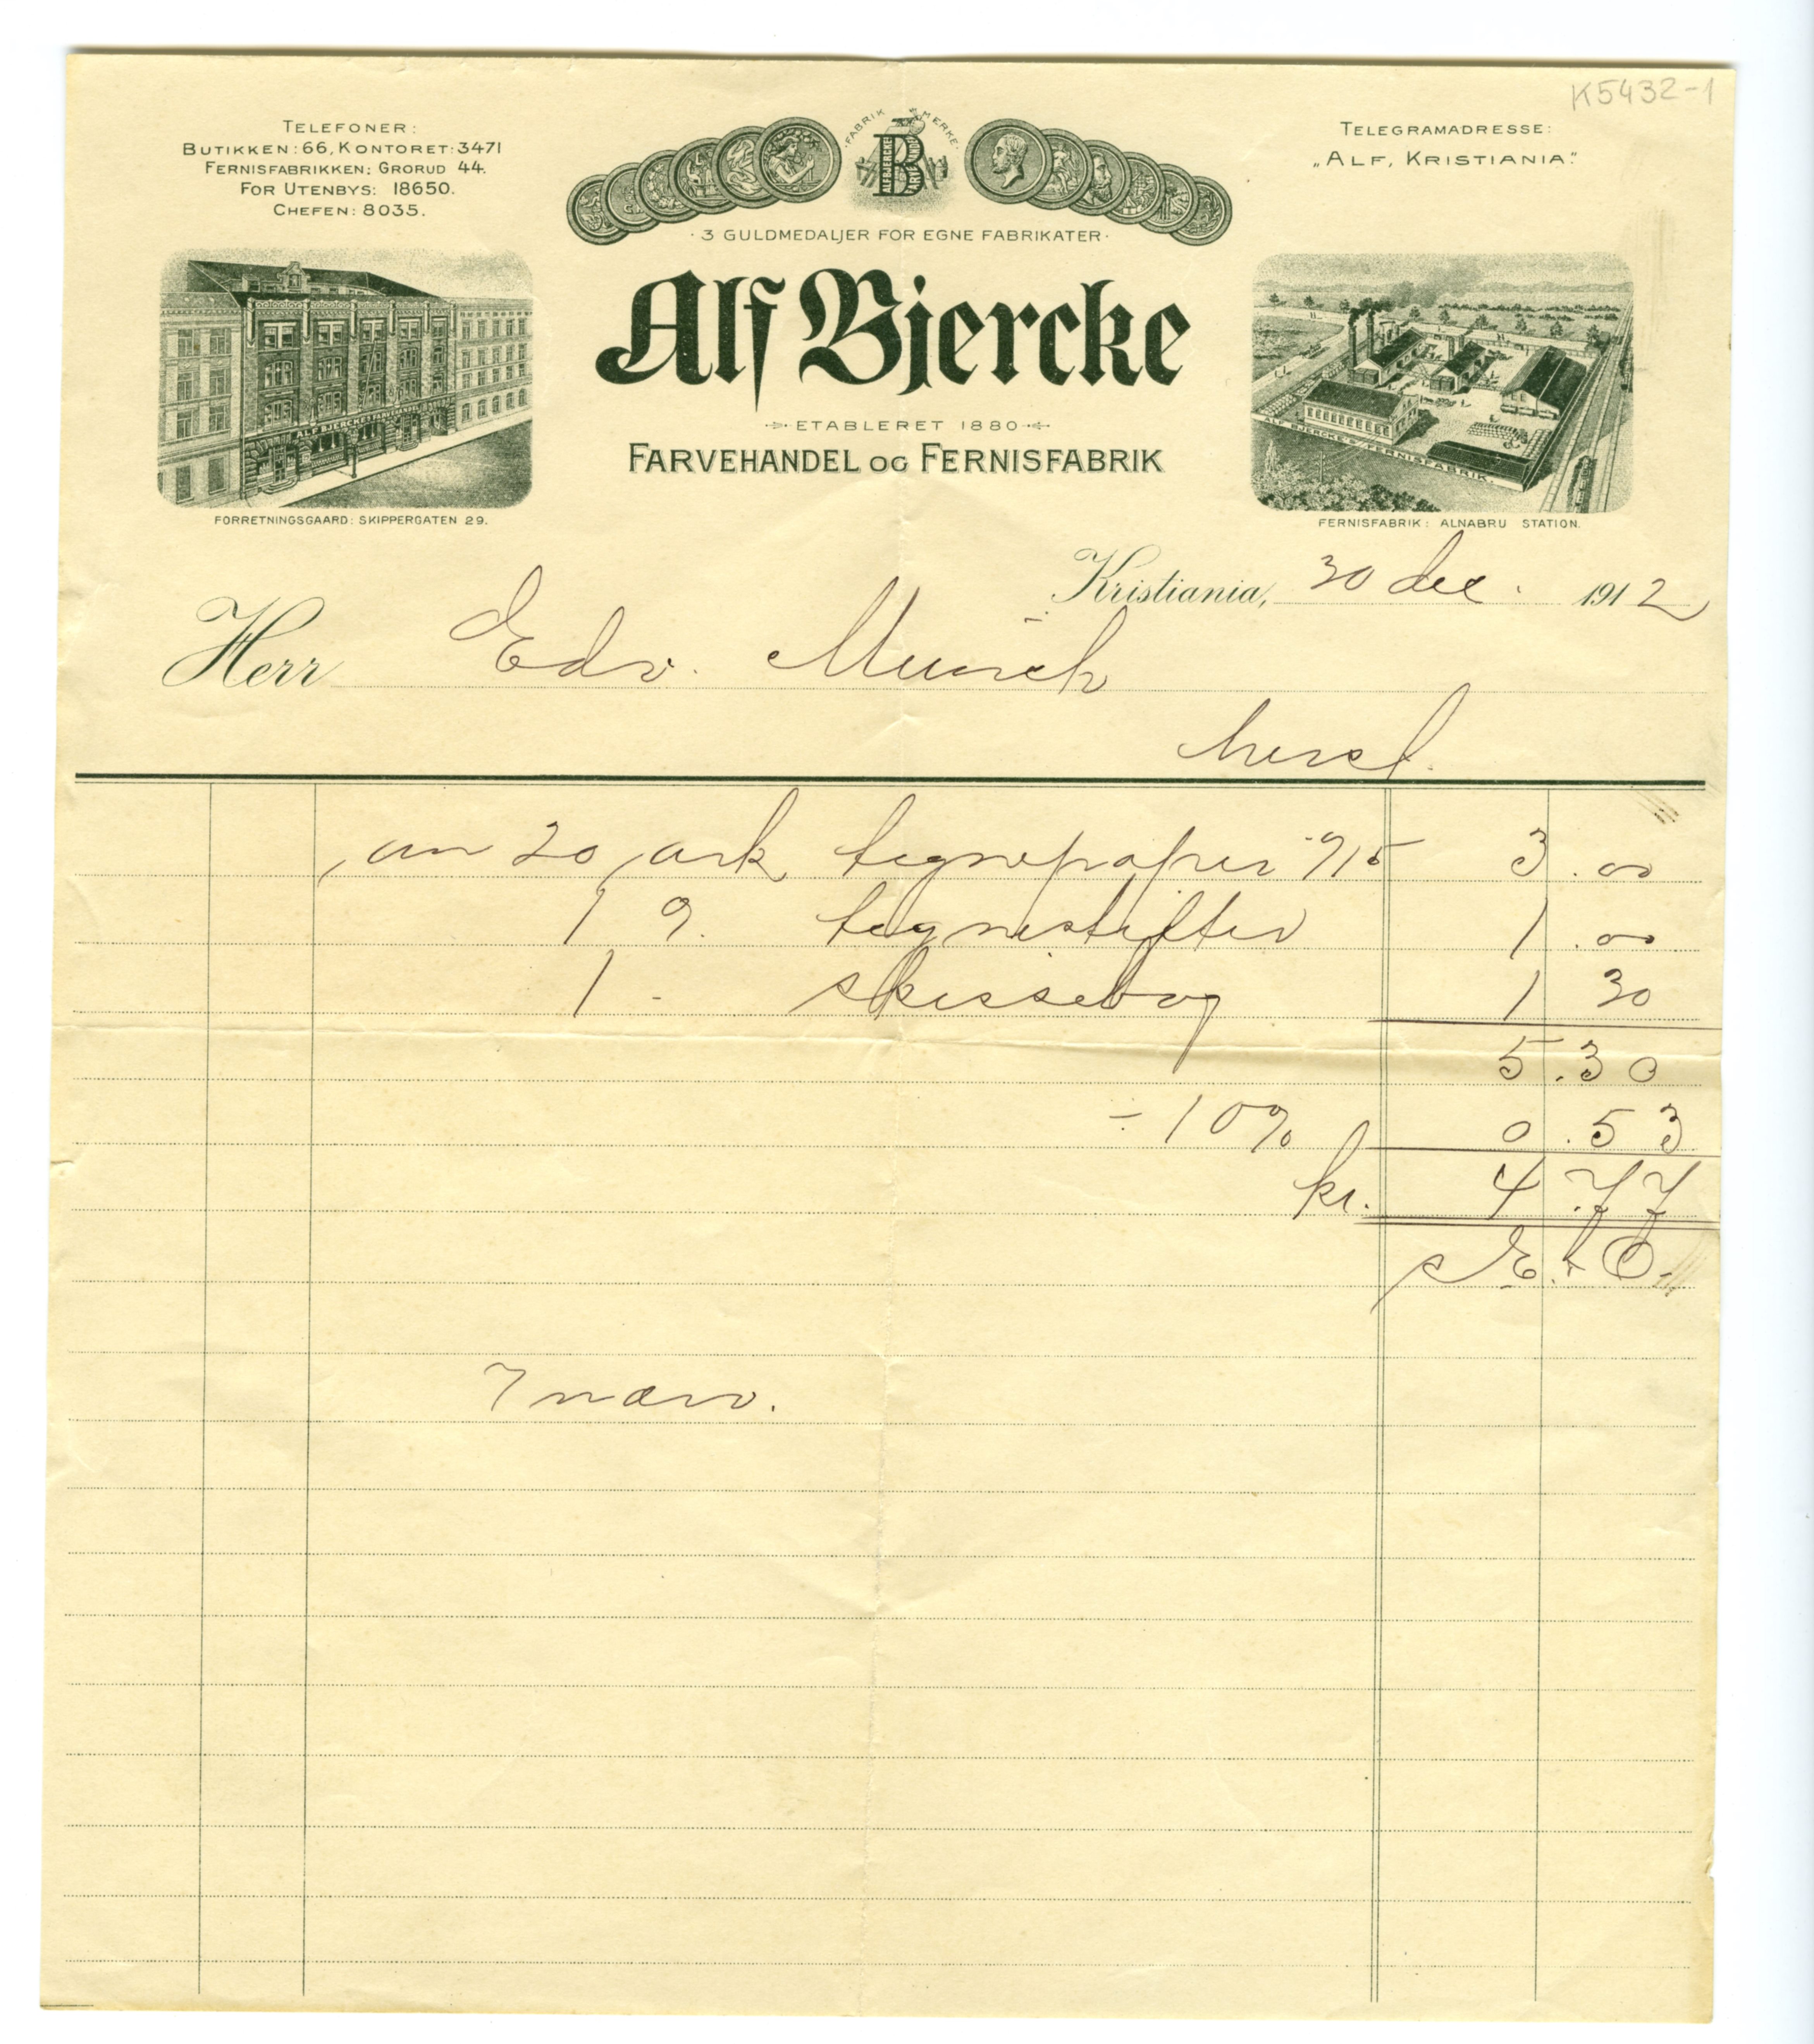 K5432-1
TELEFONER:
BUTIKKEN: 66, KONTORET: 3471
FERNISFABRIKKEN: GRORUD 44.
FOR UTENBYS: 18650.
CHEFEN: 8035.
FABRIK MERKE
B
· 3 GULDMEDALJER FOR EGNE FABRIKATER ·
TELEGRAMADRESSE:
„ALF, KRISTIANIA."
Alf Bjercke
ETABLERET 1880
FARVEHANDEL OG FERNISFABRIK
FORRETNINGSGAARD: SKIPPERGATEN 29.
ALF BJERCKE'S FERNISFABRIK.
FERNISFABRIK: ALNABRU STATION.
Kristiania, 30 dec. 1912
Herr Edv. Munch
herst.
an 20 ark tegnepapir 15 3.00
1 tegnestifter 1.00
1 - skissebog 1 30
5.30
÷ 10% 0.53
kr. 4.77